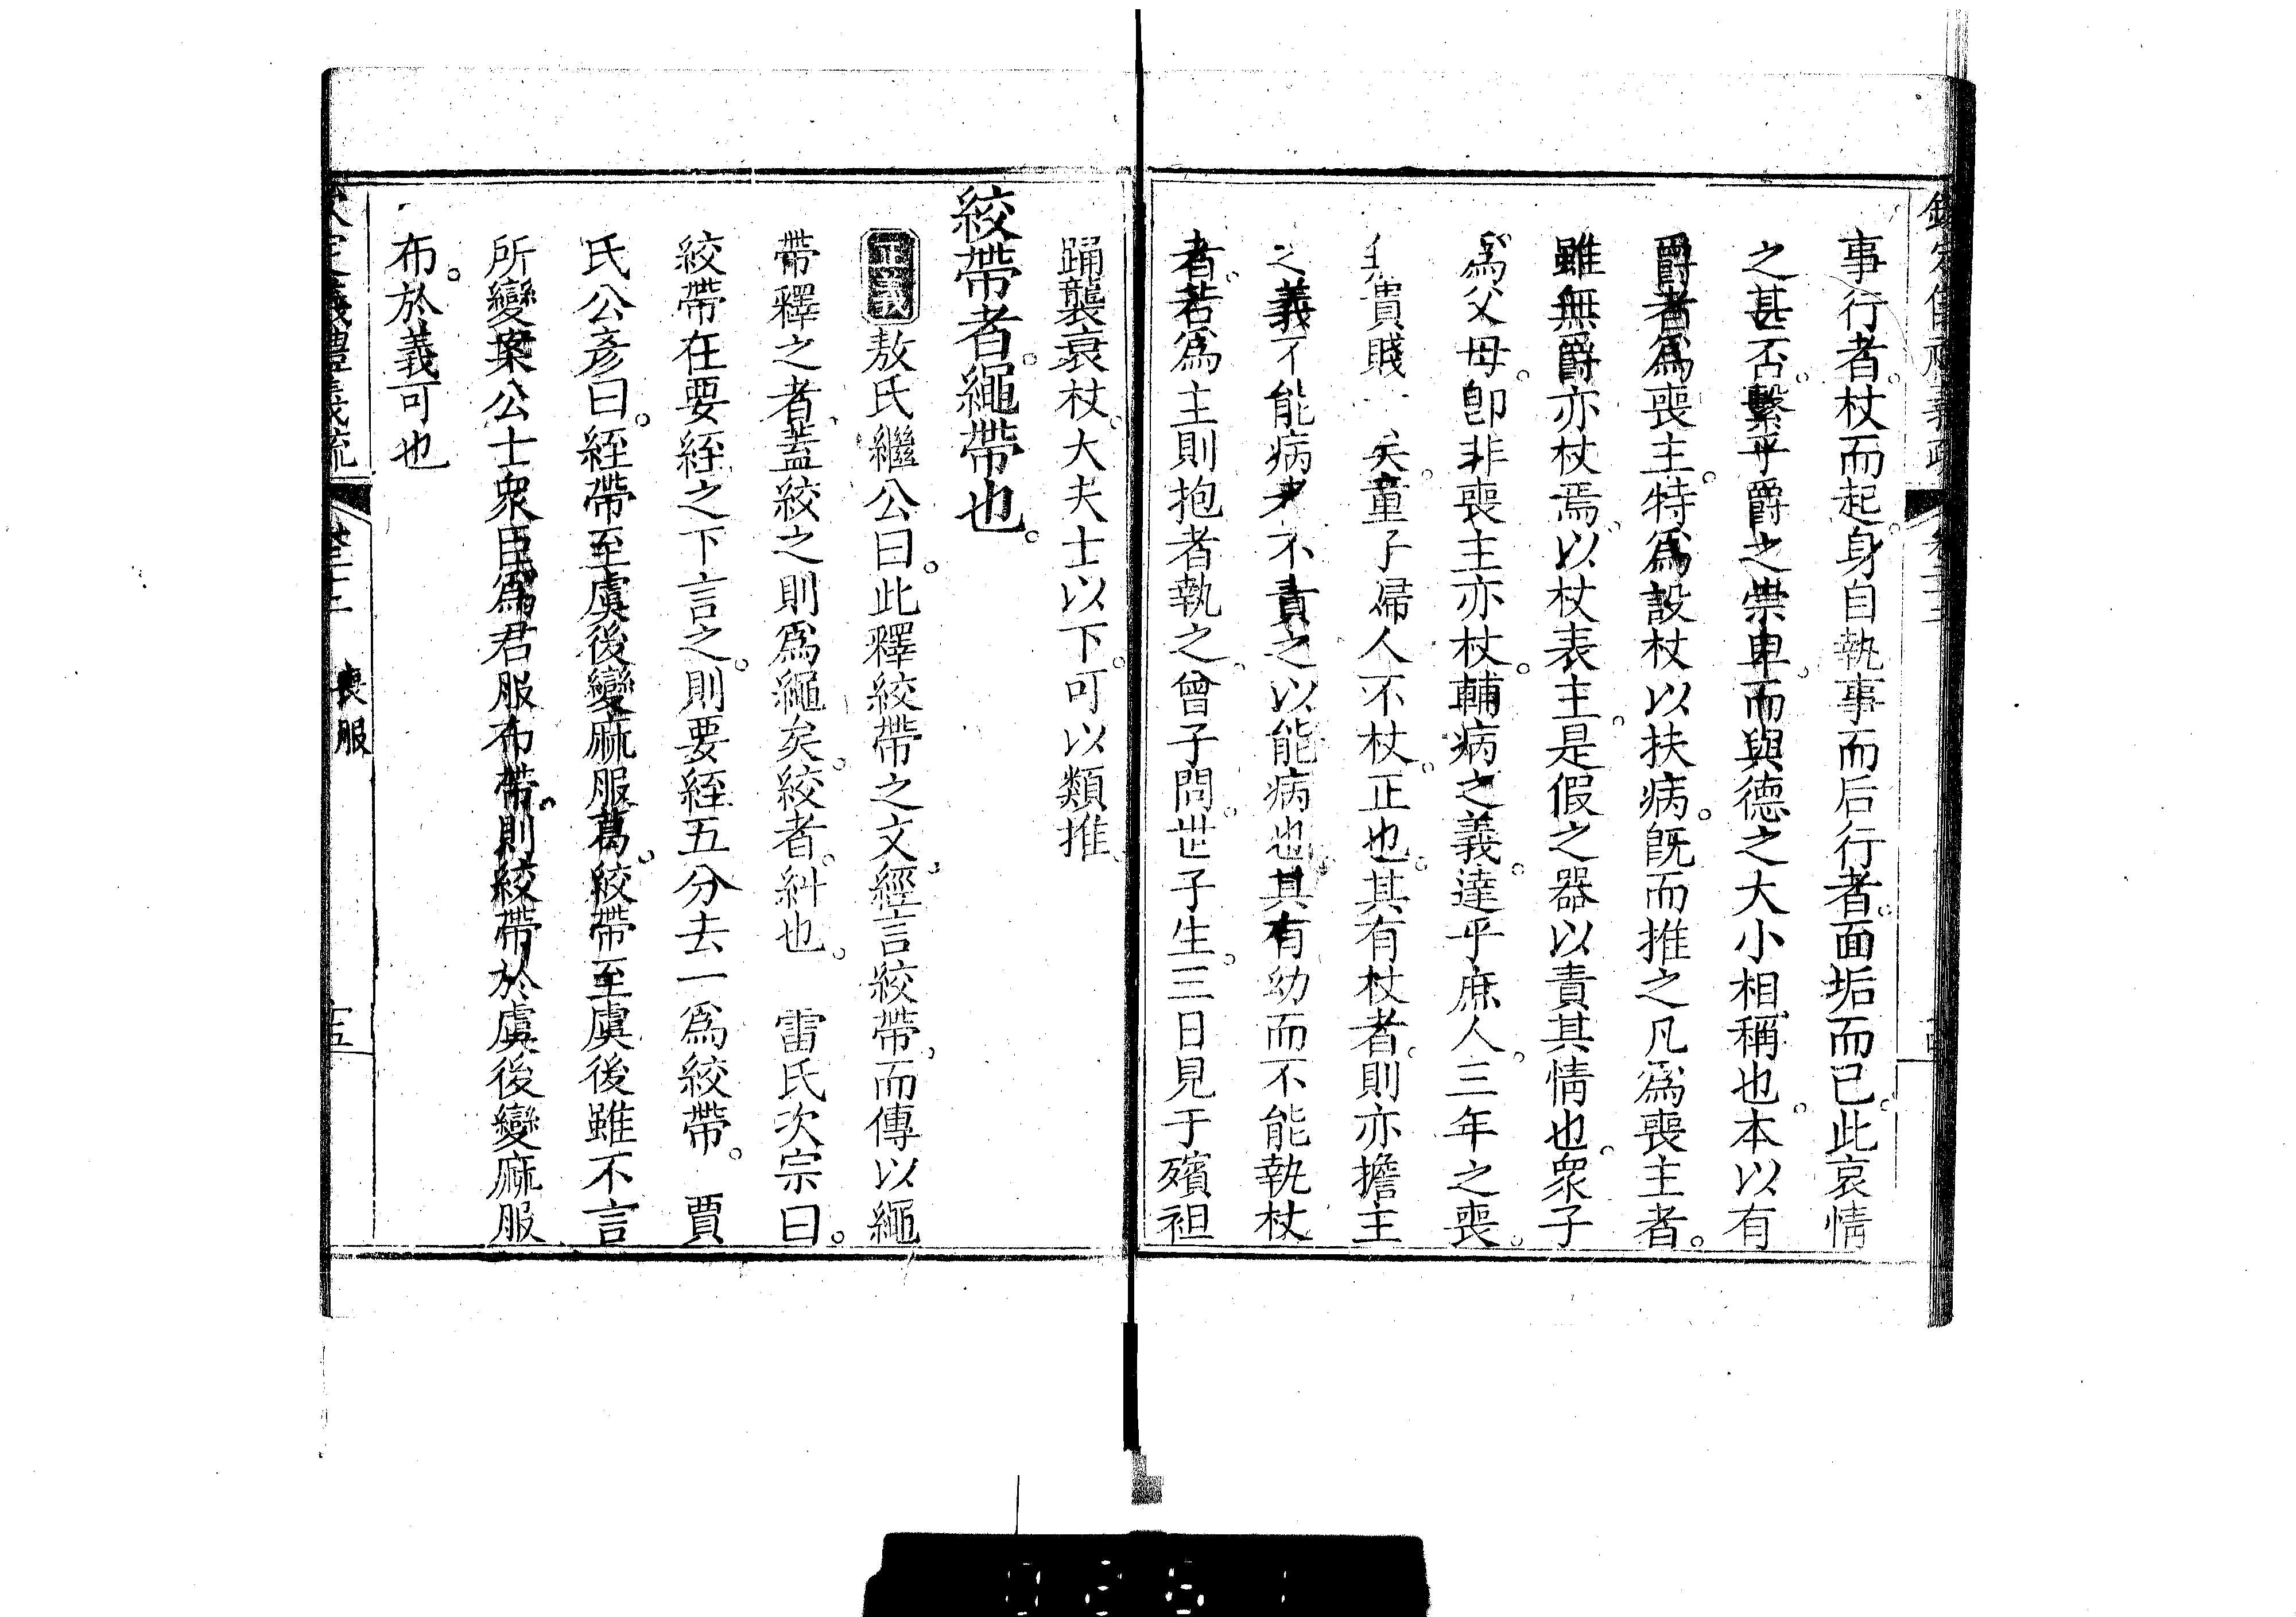 事行者。杖而起。身自執事而后行者。面垢而已。此哀情
之甚否。繫乎爵之崇卑。而與德之大小相稱也。本以有
爵者爲喪主。特爲設杖以扶病。旣而推之凡爲喪主者。
雖無爵亦杖焉。以杖表主。是假之器以責其情也。衆子
爲父母。卽非喪主亦杖。輔病之義。達乎庶人。三年之喪。
貴賤一矣。童子婦人不杖。正也。其有杖者。則亦擔主
之義。不能病者不責之以能病也。其有幼而不能執杖
者。若爲主則抱者執之。曾子問。世子生。三日見于殯袒
踊襲衰杖。大夫士以下。可以類推。
絞帶者。繩帶也。
正義敖氏繼公曰。此釋絞帶之文。經言絞帶。而傳以繩
帶釋之者。蓋絞之則爲繩矣。絞者。糾也。 雷氏次宗曰。
絞帶在要絰之下言之。則要絰五分去一爲絞帶。 賈
氏公彥曰。絰帶至虞後變麻服葛。絞帶至虞後雖不言
所變。案公士衆臣爲君服布帶。則絞帶於虞後變麻服
布。於義可也
欽定儀禮義疏
喪服